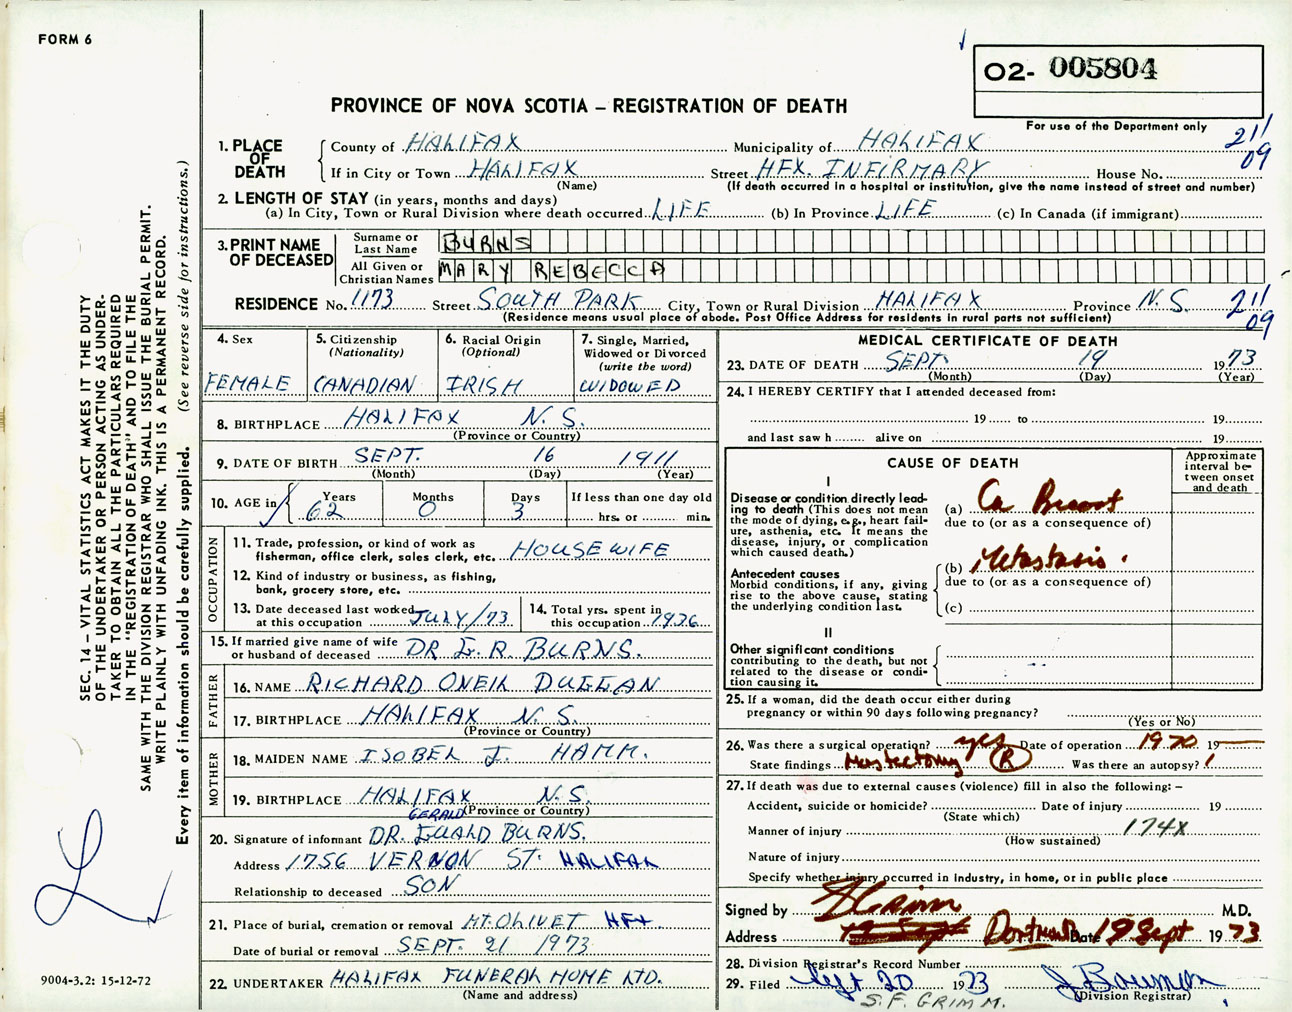 FORM 6
O2- 005804
PROVINCE OF NOVA SCOTIA – REGISTRATION OF DEATH
For use of the Department only
211
09
1. PLACE OF DEATH
County of HALIFAX Municipality of HALIFAX
If in City or Town HALIFAX Street HFX. INFIRMARY House No.
(Name) (If death occurred in a hospital or institution, give the name instead of street and number)
2. LENGTH OF STAY (in years, months and days)
(a) In City, Town or Rural Division where death occurred LIFE (b) In Province LIFE (c) In Canada (if immigrant)
3. PRINT NAME OF DECEASED
Surname or Last Name BURNS
All Given or Christian Names MARY REBECCA
RESIDENCE No. 1173 Street SOUTH PARK City, Town or Rural Division HALIFAX Province N.S. 211
09
(Residence means usual place of abode. Post Office Address for residents in rural parts not sufficient)
4. Sex
FEMALE
5. Citizenship
(Nationality)
CANADIAN
6. Racial Origin
(Optional)
IRISH
7. Single, Married,
Widowed or Divorced
(write the word)
WIDOWED
8. BIRTHPLACE HALIFAX N.S.
(Province or Country)
9. DATE OF BIRTH SEPT. 16 1911
(Month) (Day) (Year)
10. AGE in
Years Months Days If less than one day old
62 0 3 hrs. or min.
OCCUPATION
11. Trade, profession, or kind of work as
fisherman, office clerk, sales clerk, etc. HOUSEWIFE
12. Kind of industry or business, as fishing,
bank, grocery store, etc.
13. Date deceased last worked
at this occupation JULY/73
14. Total yrs. spent in
this occupation 1936
15. If married give name of wife
or husband of deceased DR G.R. BURNS.
FATHER
16. NAME RICHARD ONEIL DUGGAN
17. BIRTHPLACE HALIFAX N.S.
(Province or Country)
MOTHER
18. MAIDEN NAME ISOBEL J. HAMM.
19. BIRTHPLACE HALIFAX N.S.
(Province or Country)
GERALD
20. Signature of informant DR. BURNS.
Address 1756 VERNON ST. HALIFAX
Relationship to deceased SON
21. Place of burial, cremation or removal MT. OLIVET HFX
Date of burial or removal SEPT. 21 1973
22. UNDERTAKER HALIFAX FUNERAL HOME LTD.
(Name and address)
MEDICAL CERTIFICATE OF DEATH
23. DATE OF DEATH SEPT. 19 1973
(Month) (Day) (Year)
24. I HEREBY CERTIFY that I attended deceased from:
19 to 19
and last saw h alive on 19
CAUSE OF DEATH
Approximate
interval be-
tween onset
and death
I
Disease or condition directly lead-
ing to death (This does not mean
the mode of dying, e.g., heart fail-
ure, asthenia, etc. It means the
disease, injury, or complication
which caused death.)
(a) Ca Breast
due to (or as a consequence of)
Antecedent causes
Morbid conditions, if any, giving
rise to the above cause, stating
the underlying condition last.
(b) Metastasis.
due to (or as a consequence of)
(c)
II
Other significant conditions
contributing to the death, but not
related to the disease or condi-
tion causing it.
25. If a woman, did the death occur either during
pregnancy or within 90 days following pregnancy?
(Yes or No)
26. Was there a surgical operation? yes Date of operation 1970 19
State findings Mastectomy (R) Was there an autopsy?
27. If death was due to external causes (violence) fill in also the following: –
Accident, suicide or homicide? Date of injury 19
(State which)
Manner of injury 174X
(How sustained)
Nature of injury
Specify whether injury occurred in industry, in home, or in public place
Signed by S Grimm M.D.
Address Date 19 Sept 1973
28. Division Registrar's Record Number
29. Filed Sept 20 1973
(Division Registrar)
S.F. GRIMM.
SEC. 14 – VITAL STATISTICS ACT MAKES IT THE DUTY
OF THE UNDERTAKER OR PERSON ACTING AS UNDER-
TAKER TO OBTAIN ALL THE PARTICULARS REQUIRED
IN THE "REGISTRATION OF DEATH" AND TO FILE THE
SAME WITH THE DIVISION REGISTRAR WHO SHALL ISSUE THE BURIAL PERMIT.
WRITE PLAINLY WITH UNFADING INK. THIS IS A PERMANENT RECORD.
Every item of information should be carefully supplied. (See reverse side for instructions.)
9004-3.2: 15-12-72